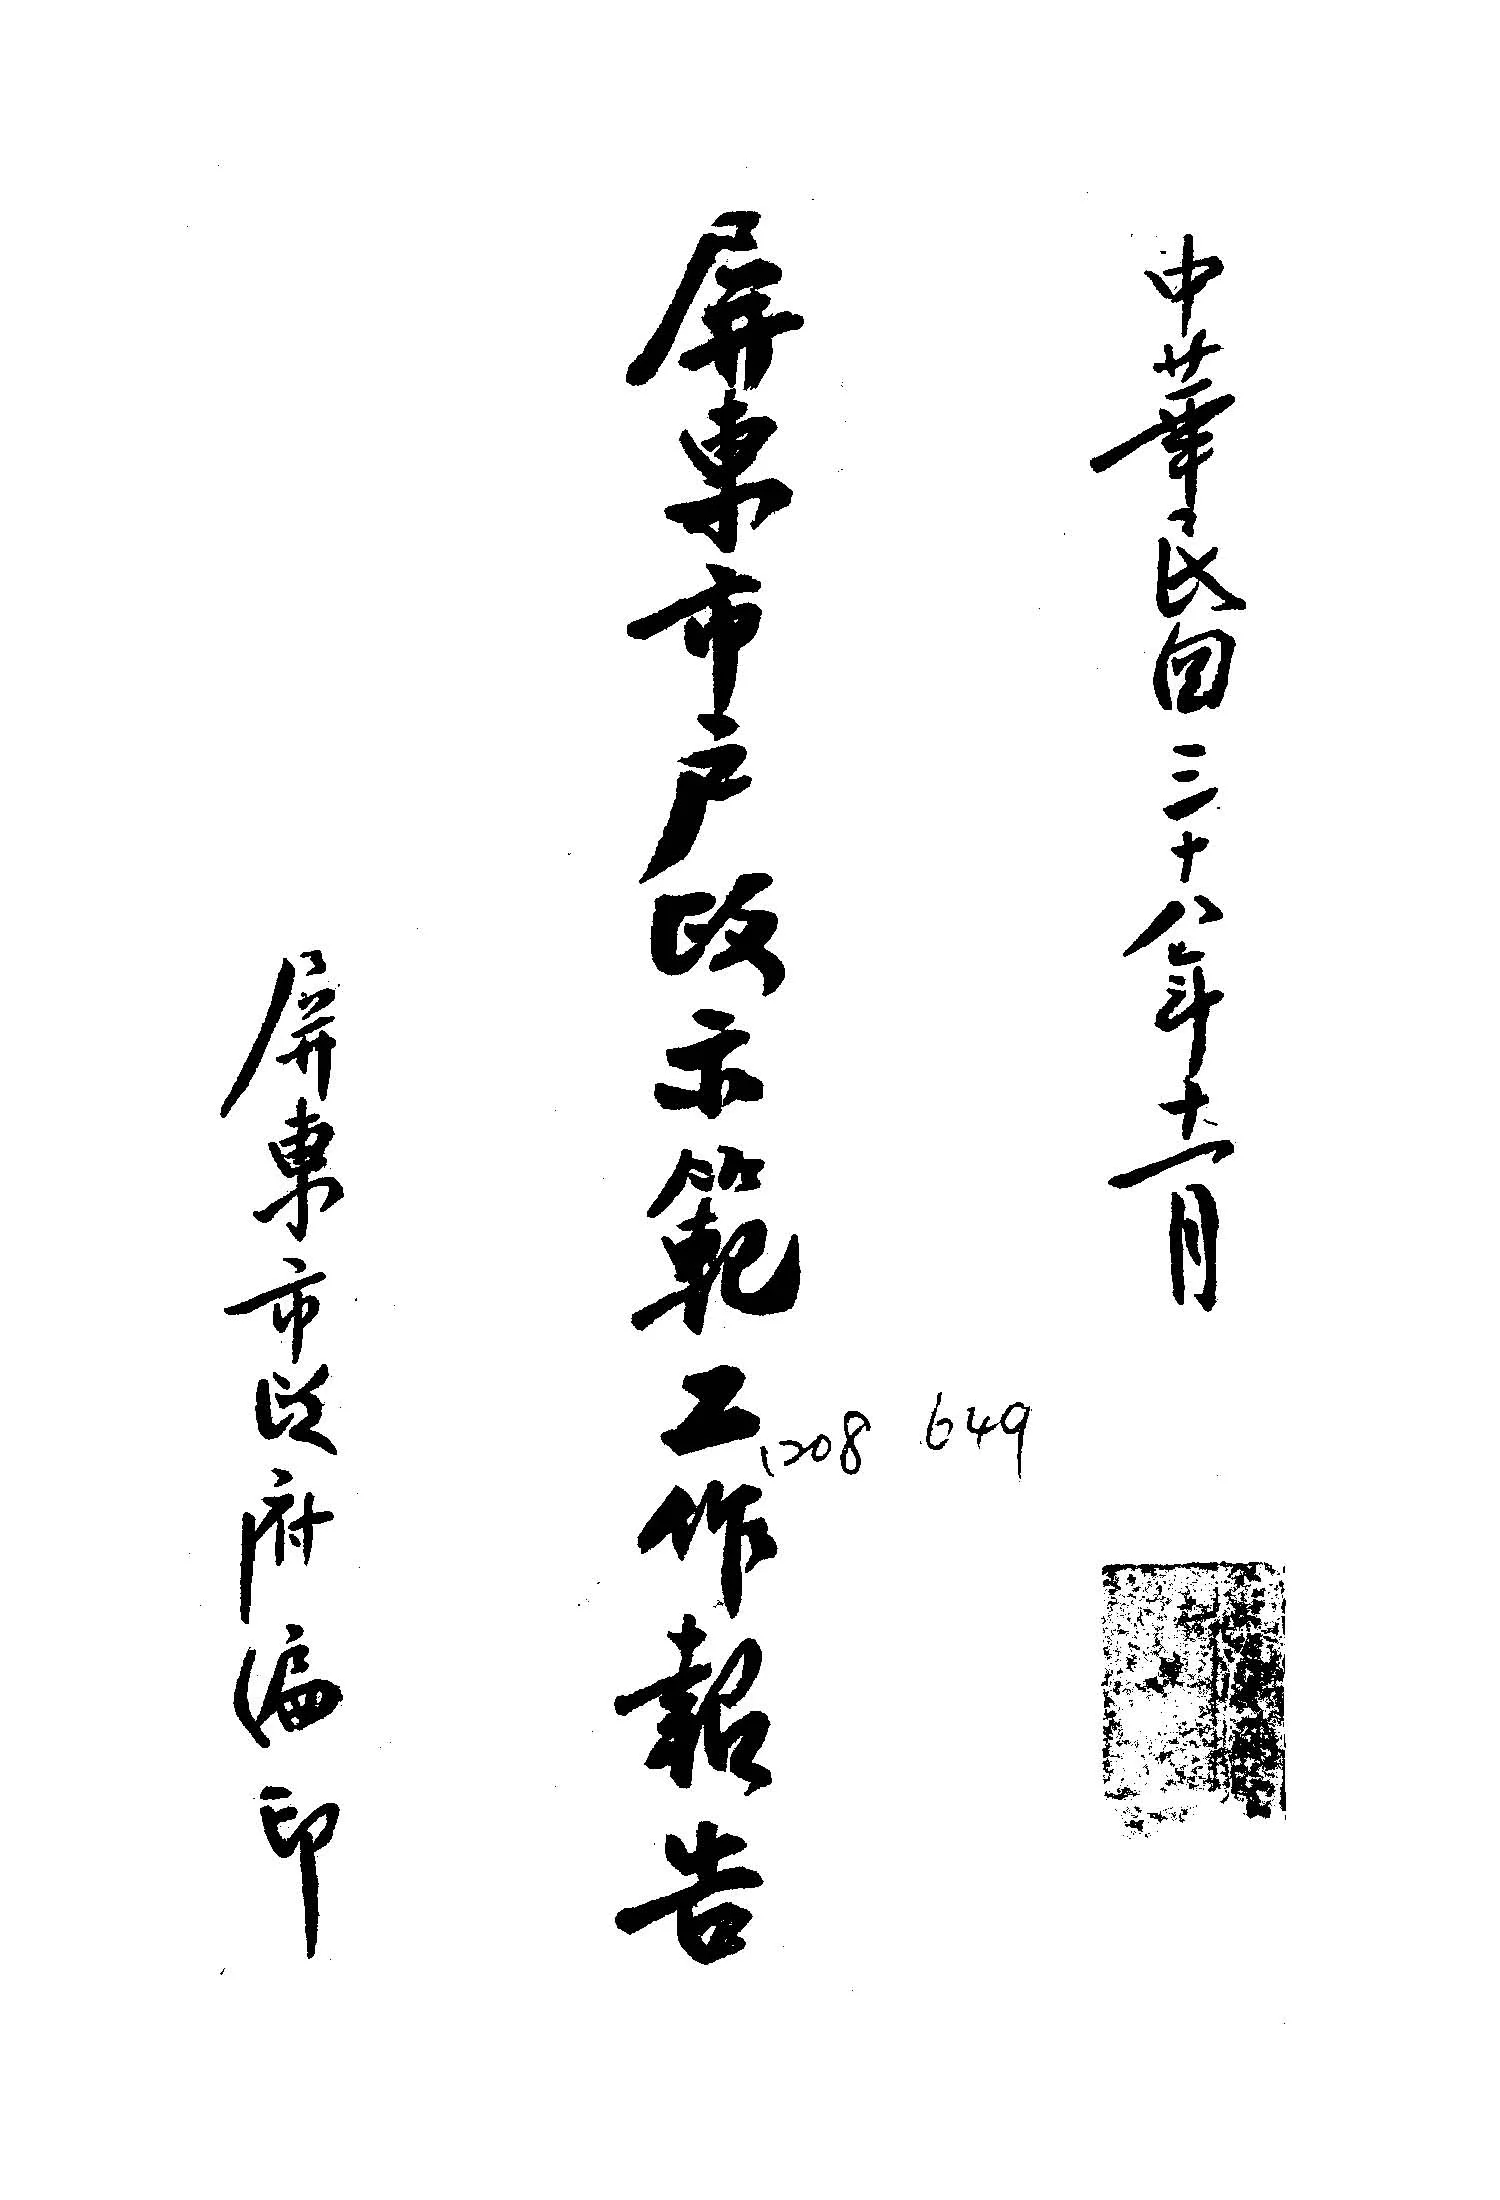 中華民国三十八年十一月
屏東市户政示範工作報告
1208 649
屏東市政府编印